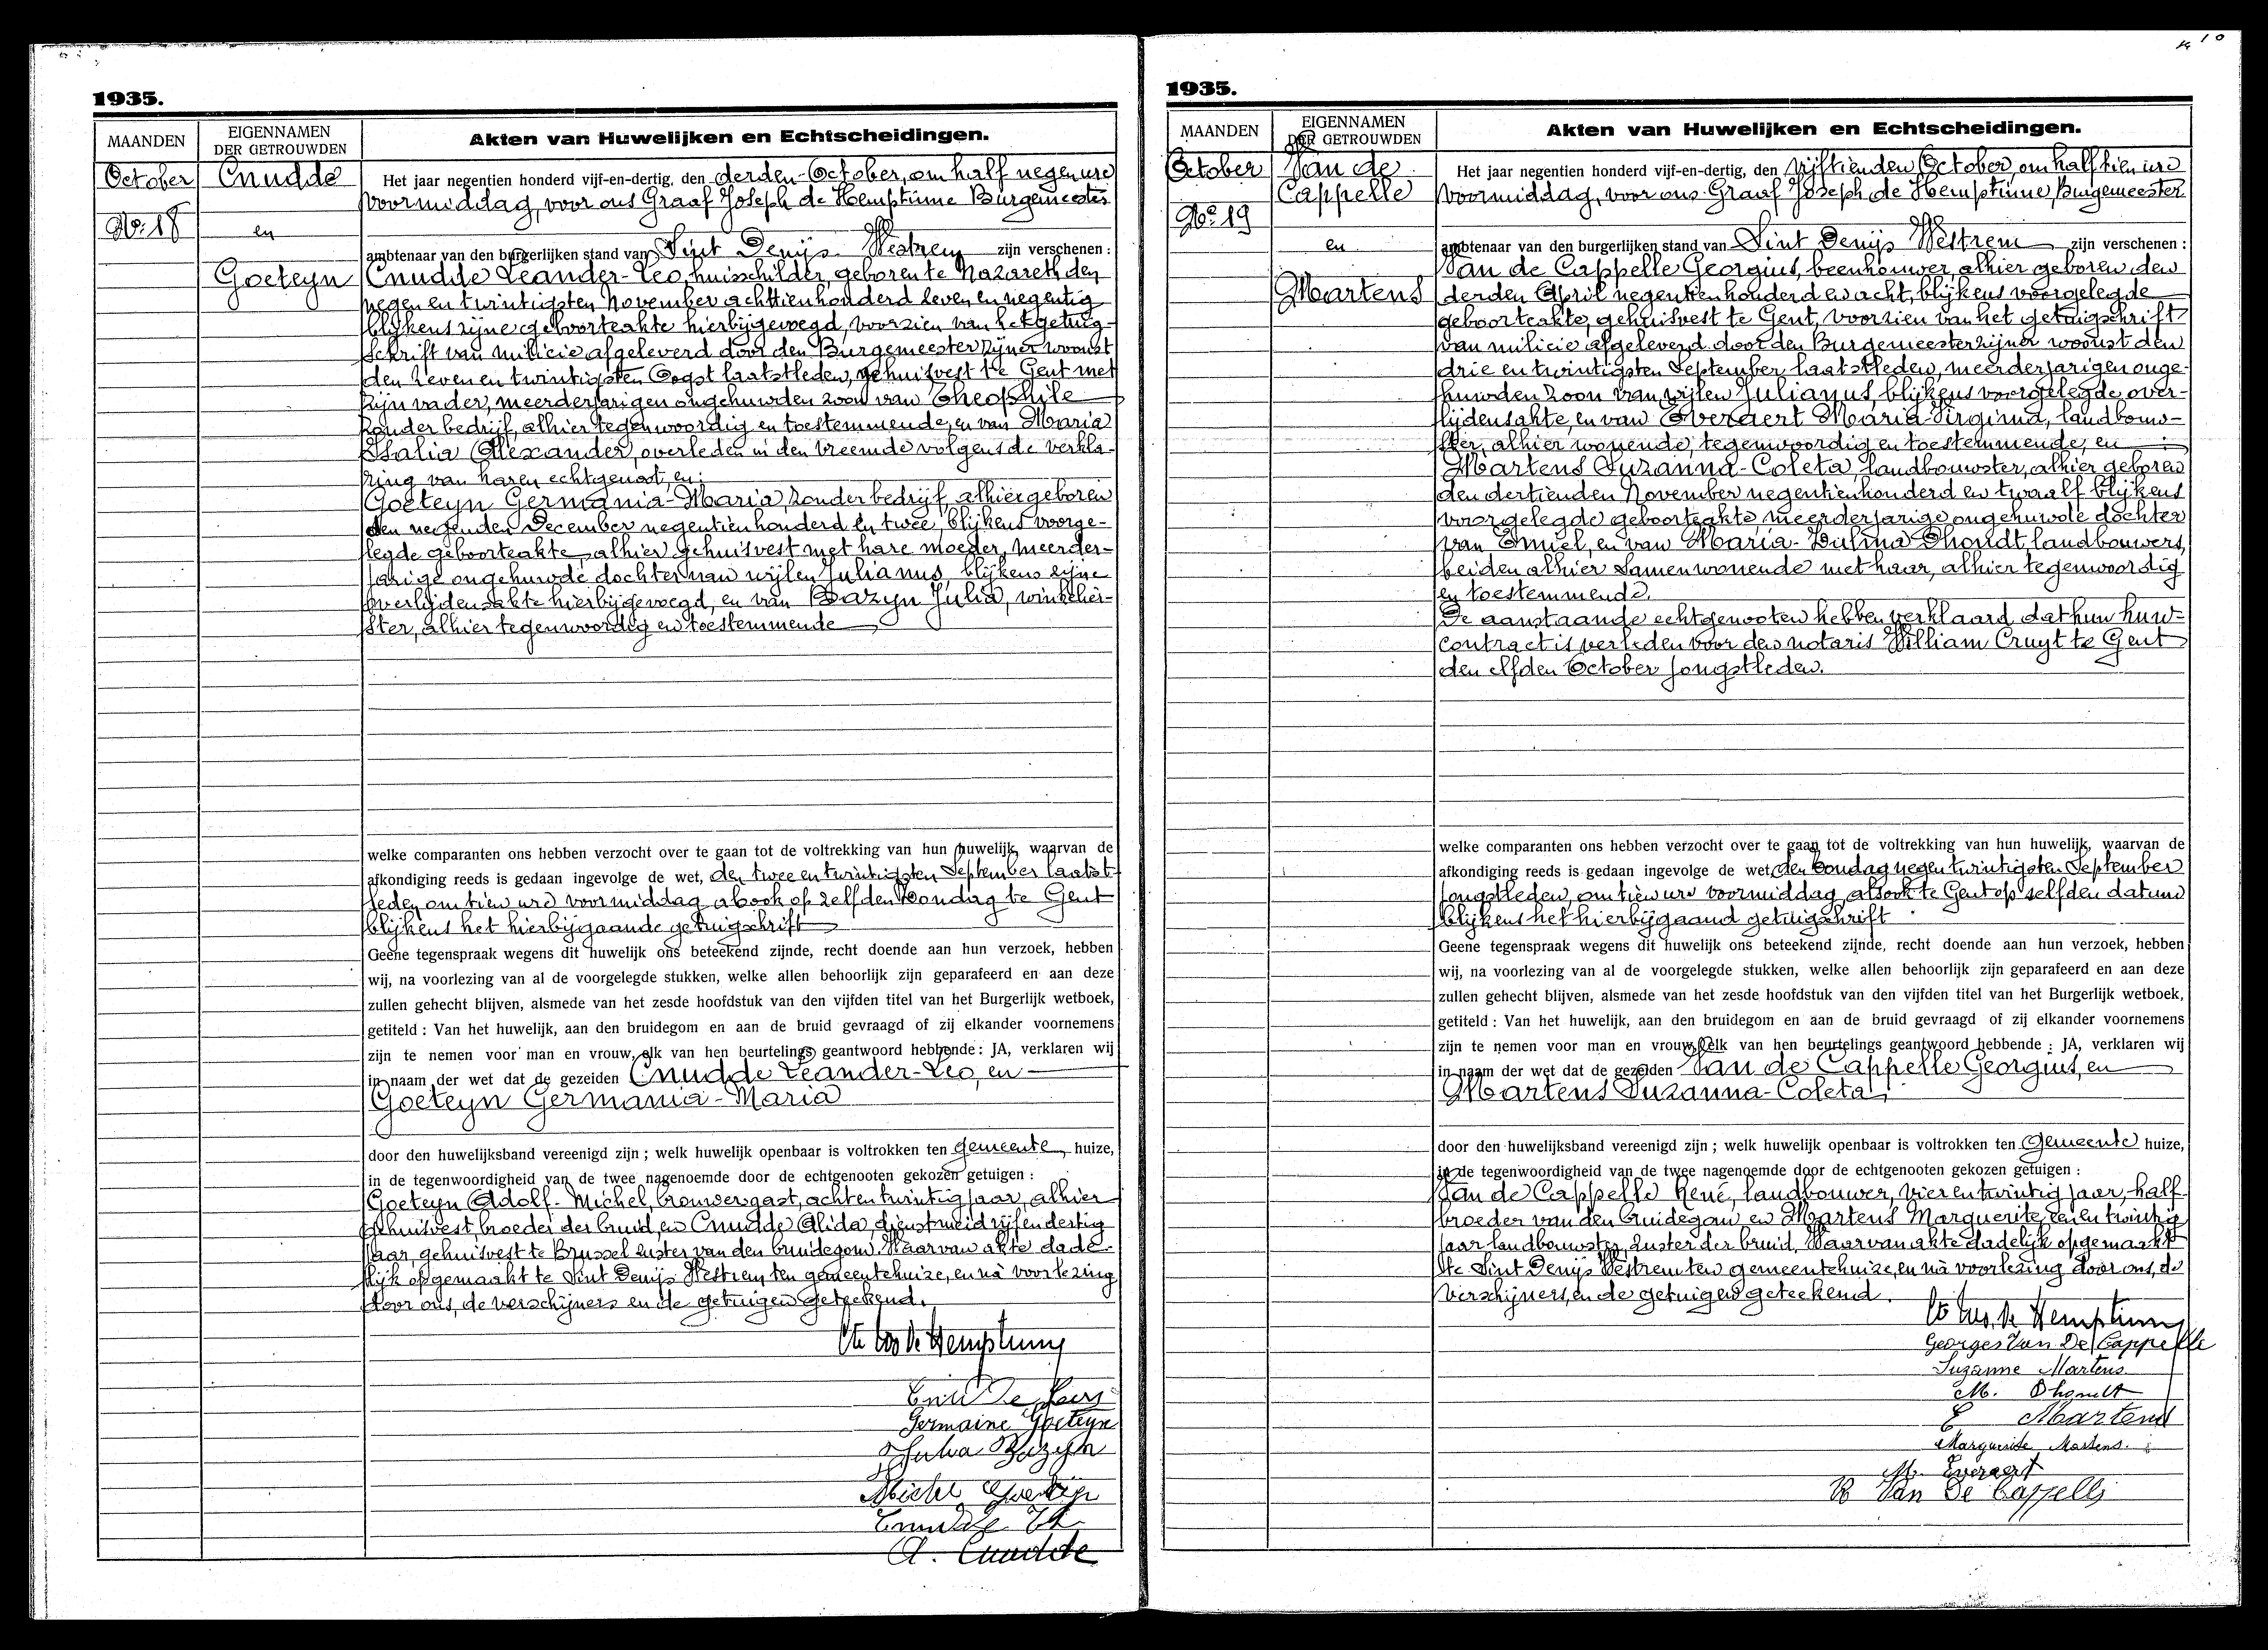 1935.
MAANDEN
EIGENNAMEN
DER GETROUWDEN
Akten van Huwelijken en Echtscheidingen.
October
No. 18
Cnudde
en
Goeteyn
Het jaar negentien honderd vijf-en-dertig, den derden October, om half negen ure
voormiddag, voor ons Graaf Joseph de Hemptinne Burgemeester
ambtenaar van den burgerlijken stand van Sint Denijs Westrem zijn verschenen :
Cnudde Leander-Leo, huisschilder, geboren te Nazareth den
negen en twintigsten November achttienhonderd zeven en negentig
blijkens zijne geboorteakte hierbijgevoegd, voorzien van het getuig-
schrift van milicie afgeleverd door den Burgemeester zijner woonst
den zeven en twintigsten Oogst laatstleden, gehuisvest te Gent met
zijn vader, meerderjarigen ongehuwden zoon van Theophile
zonder bedrijf, alhier tegenwoordig en toestemmende, en van Maria
Thalia Alexander, overleden in den vreemde volgens de verkla-
ring van haren echtgenoot, en:
Goeteyn Germania-Maria, zonder bedrijf, alhier geboren
den negenden December negentienhonderd en twee, blijkens voorge-
legde geboorteakte, alhier gehuisvest met hare moeder, meerder-
jarige ongehuwde dochter van wijlen Julianus, blijkens zijne
overlijdensakte hierbijgevoegd, en van Bazyn Julia, winkelier-
ster, alhier tegenwoordig en toestemmende
welke comparanten ons hebben verzocht over te gaan tot de voltrekking van hun huwelijk, waarvan de
afkondiging reeds is gedaan ingevolge de wet, den twee en twintigsten September laatst-
leden om tien ure voormiddag alsook op zelfden Zondag te Gent
blijkens het hierbijgaande getuigschrift
Geene tegenspraak wegens dit huwelijk ons beteekend zijnde, recht doende aan hun verzoek, hebben
wij, na voorlezing van al de voorgelegde stukken, welke allen behoorlijk zijn geparafeerd en aan deze
zullen gehecht blijven, alsmede van het zesde hoofdstuk van den vijfden titel van het Burgerlijk wetboek,
getiteld : Van het huwelijk, aan den bruidegom en aan de bruid gevraagd of zij elkander voornemens
zijn te nemen voor man en vrouw, elk van hen beurtelings geantwoord hebbende : JA, verklaren wij
in naam der wet dat de gezeiden Cnudde Leander-Leo, en
Goeteyn Germania-Maria
door den huwelijksband vereenigd zijn ; welk huwelijk openbaar is voltrokken ten gemeente huize,
in de tegenwoordigheid van de twee nagenoemde door de echtgenooten gekozen getuigen :
Goeteyn Adolf-Michel, brouwersgast, achtentwintig jaar, alhier
gehuisvest, broeder der bruid, en Cnudde Alida, dienstmeid vijfendertig
jaar, gehuisvest te Brussel zuster van den bruidegom. Waarvan akte dade-
lijk opgemaakt te Sint Denijs Westrem ten gemeentehuize, en na voorlezing
door ons, de verschijners en de getuigen geteekend.
de Hemptinne
Germaine Goeteyn
Julia Bazyn
Michel Goeteyn
Cnudde Th
A. Cnudde
1935.
MAANDEN
EIGENNAMEN
DER GETROUWDEN
Akten van Huwelijken en Echtscheidingen.
October
No. 19
Van de
Cappelle
en
Martens
Het jaar negentien honderd vijf-en-dertig, den vijftienden October, om half tien ure
voormiddag, voor ons Graaf Joseph de Hemptinne, Burgemeester
ambtenaar van den burgerlijken stand van Sint Denijs Westrem zijn verschenen :
Van de Cappelle Georgius, beenhouwer, alhier geboren den
derden April negentienhonderd en acht, blijkens voorgelegde
geboorteakte, gehuisvest te Gent, voorzien van het getuigschrift
van milicie afgeleverd door den Burgemeester zijner woonst den
drie en twintigsten September laatstleden, meerderjarigen onge-
huwden zoon van wijlen Julianus, blijkens voorgelegde over-
lijdensakte, en van Everaert Maria-Virginia, landbouw-
ster, alhier wonende, tegenwoordig en toestemmende, en
Martens Suzanna-Coleta, landbouwster, alhier geboren
den dertienden November negentienhonderd en twaalf blijkens
voorgelegde geboorteakte, meerderjarige ongehuwde dochter
van Emiel, en van Maria-Zulma Dhondt, landbouwers,
beiden alhier samenwonende met haar, alhier tegenwoordig
en toestemmende.
De aanstaande echtgenooten hebben verklaard dat hun huw-
contract is verleden voor den notaris William Cruyt te Gent
den elfden October jongstleden.
welke comparanten ons hebben verzocht over te gaan tot de voltrekking van hun huwelijk, waarvan de
afkondiging reeds is gedaan ingevolge de wet, den Zondag negen twintigsten September
jongstleden, om tien ure voormiddag, alsook te Gent op zelfden datum
blijkens het hierbijgaand getuigschrift
Geene tegenspraak wegens dit huwelijk ons beteekend zijnde, recht doende aan hun verzoek, hebben
wij, na voorlezing van al de voorgelegde stukken, welke allen behoorlijk zijn geparafeerd en aan deze
zullen gehecht blijven, alsmede van het zesde hoofdstuk van den vijfden titel van het Burgerlijk wetboek,
getiteld : Van het huwelijk, aan den bruidegom en aan de bruid gevraagd of zij elkander voornemens
zijn te nemen voor man en vrouw, elk van hen beurtelings geantwoord hebbende : JA, verklaren wij
in naam der wet dat de gezeiden Van de Cappelle Georgius, en
Martens Suzanna-Coleta,
door den huwelijksband vereenigd zijn ; welk huwelijk openbaar is voltrokken ten Gemeente huize,
in de tegenwoordigheid van de twee nagenoemde door de echtgenooten gekozen getuigen :
Van de Cappelle René, landbouwer, vier en twintig jaar, half-
broeder van den bruidegom en Martens Marguerite, een en twintig
jaar landbouwster, zuster der bruid. Waarvan akte dadelijk opgemaakt
te Sint Denijs Westrem ten gemeentehuize, en na voorlezing door ons, de
verschijners, en de getuigen geteekend.
de Hemptinne
Georges Van De Cappelle
Suzanne Martens
M. Dhondt
E Martens
Marguerite Martens.
M. Everaert
R Van De Cappelle